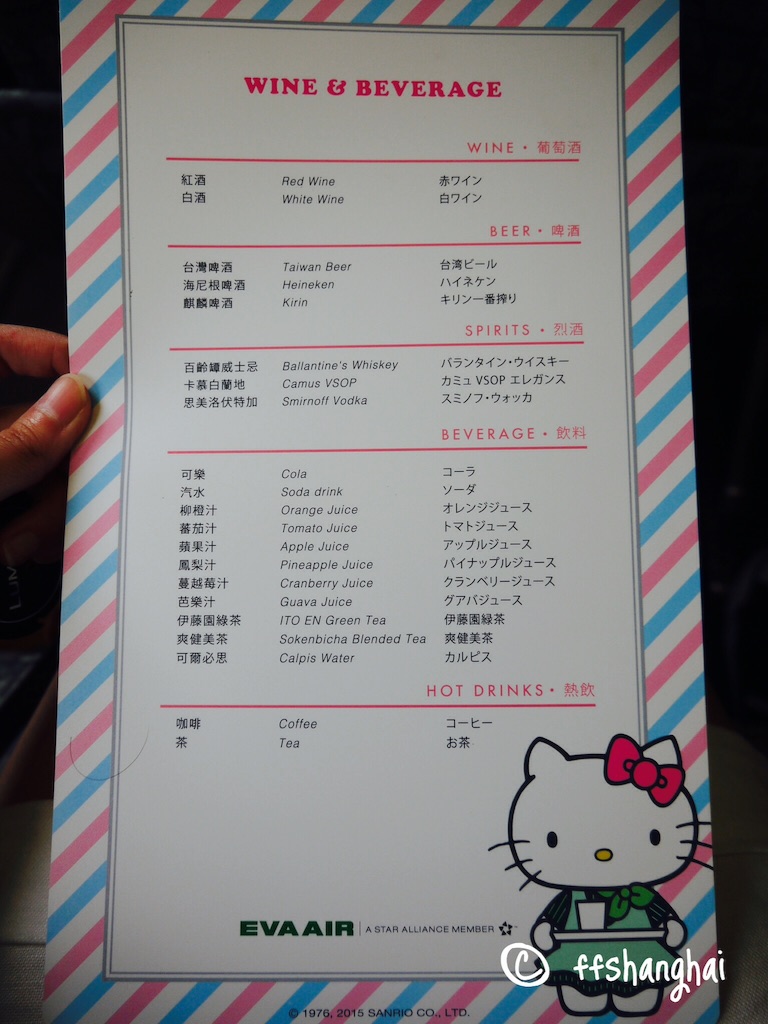 WINE & BEVERAGE
WINE • 葡萄酒
紅酒 Red Wine 赤ワイン
白酒 White Wine 白ワイン
BEER • 啤酒
台灣啤酒 Taiwan Beer 台湾ビール
海尼根啤酒 Heineken ハイネケン
麒麟啤酒 Kirin キリン一番搾り
SPIRITS • 烈酒
百齡罈威士忌 Ballantine's Whiskey バランタイン・ウイスキー
卡慕白蘭地 Camus VSOP カミュ VSOP エレガンス
思美洛伏特加 Smirnoff Vodka スミノフ・ウォッカ
BEVERAGE • 飲料
可樂 Cola コーラ
汽水 Soda drink ソーダ
柳橙汁 Orange Juice オレンジジュース
蕃茄汁 Tomato Juice トマトジュース
蘋果汁 Apple Juice アップルジュース
鳳梨汁 Pineapple Juice パイナップルジュース
蔓越莓汁 Cranberry Juice クランベリージュース
芭樂汁 Guava Juice グアバジュース
伊藤園綠茶 ITO EN Green Tea 伊藤園緑茶
爽健美茶 Sokenbicha Blended Tea 爽健美茶
可爾必思 Calpis Water カルピス
HOT DRINKS • 熱飲
咖啡 Coffee コーヒー
茶 Tea お茶
EVA AIR | A STAR ALLIANCE MEMBER
© ffshanghai
© 1976, 2015 SANRIO CO., LTD.